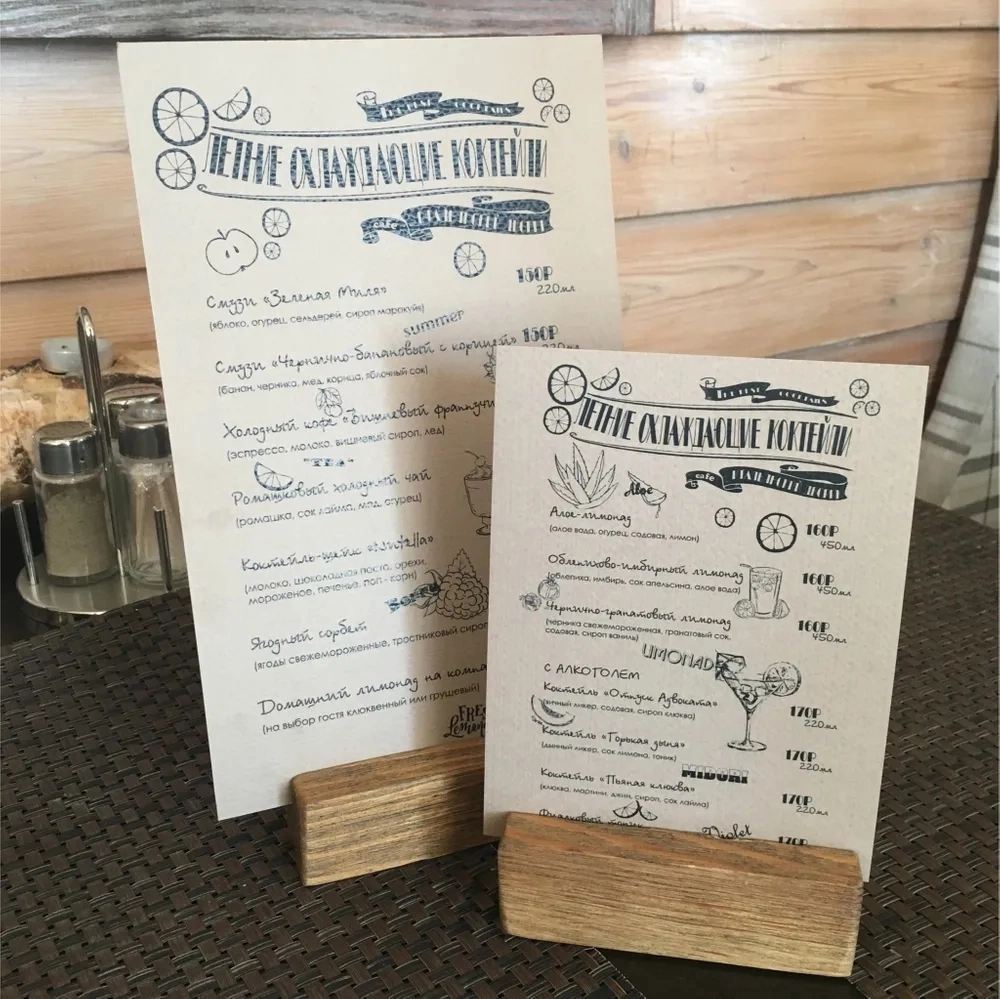 THE BEST COCKTAILS
ЛЕТНИЕ ОХЛАЖДАЮЩИЕ КОКТЕЙЛИ
cafe
Смузи «Зеленая Миля»
150Р
(яблоко, огурец, сельдерей, сироп маракуйя)
220мл
summer
Смузи «Чернично-банановый с корицей»
150Р
(банан, черника, мед, корица, яблочный сок)
220мл
Холодный кофе «Вишневый
(эспрессо, молоко, вишневый сироп, лед)
"TEA"
Ромашковый холодный чай
(ромашка, сок лайма, мед, огурец)
Коктейль-шейк «Nutella»
(молоко, шоколадная паста, орехи,
мороженое, печенье, поп - корн)
Ягодный сорбет
(ягоды свежемороженные, тростниковый сироп
Домашний лимонад на
(на выбор гостя клюквенный или грушевый)
THE BEST COCKTAILS
ЛЕТНИЕ ОХЛАЖДАЮЩИЕ КОКТЕЙЛИ
cafe
Aloe
Алое-лимонад
160Р
(алое вода, огурец, содовая, лимон)
450мл
Облепихово-имбирный лимонад
160Р
(облепиха, имбирь, сок апельсина, алое вода)
450мл
Чернично-гранатовый лимонад
160Р
(черника свежемороженная, гранатовый сок,
450мл
содовая, сироп ваниль)
LIMONAD
С АЛКОГОЛЕМ
Коктейль «Отпуск Адвоката»
170Р
ликер, содовая, сироп клюква)
220мл
Коктейль «Горькая дыня»
170Р
(дынный ликер, сок лимона, тоник)
220мл
MIDORI
Коктейль «Пьяная клюква»
170Р
(клюква, мартини, джин, сироп, сок лайма)
220мл
Фиалковый тоник
Violet
170Р